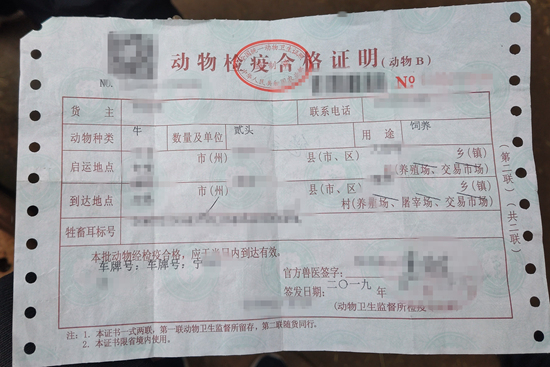 动物检疫合格证明(动物B)
No. No
货 主 联系电话
动物种类 牛 数量及单位 贰头 用途 饲养
启运地点 市(州) 县(市、区) 乡(镇)
村(养殖场、交易市场)
到达地点 市(州) 县(市、区) 乡(镇)
村(养殖场、屠宰场、交易市场)
牲畜耳标号
本批动物经检疫合格,应于当日内到达有效。
车牌号:车牌号:宁
官方兽医签字:
签发日期:二〇一九 年
(动物卫生监督所检疫
注:1. 本证书一式两联,第一联动物卫生监督所留存,第二联随货同行。
2. 本证书限省境内使用。
(第二联)
共二联